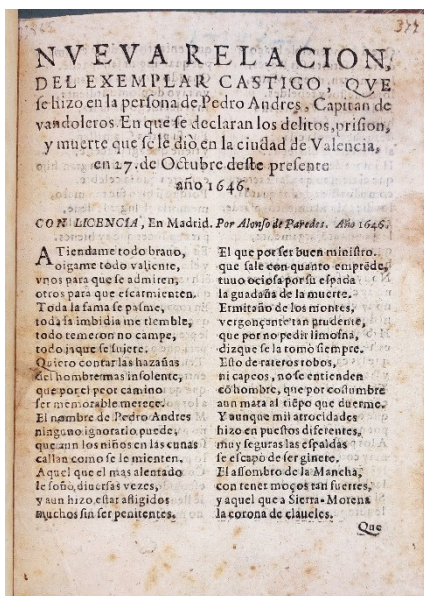 377
NVEVA RELACION,
DEL EXEMPLAR CASTIGO, QVE
se hizo en la persona de Pedro Andres, Capitan de
vandoleros En que se declaran los delitos, prision,
y muerte que se le diò en la ciudad de Valencia,
en 27. de Octubre deste presente
año 1646.
CON LICENCIA, En Madrid. Por Alonso de Paredes. Año 1646.
ATiendame todo brauo,
oigame todo valiente,
vnos para que se admiren,
otros para que escarmienten.
Toda la fama se pasme,
toda la imbidia me tiemble,
todo temeron no campe,
todo jaque se sujete.
Quiero contar las hazañas
del hombre mas insolente,
que por el peor camino
ser memorable merece.
El nombre de Pedro Andres
ninguno ignorarlo puede,
que aun los niños en las cunas
callan como se le mienten.
Aquel que el mas alentado
le soño diuersas vezes,
y aun hizo estar afligidos
muchos sin ser penitentes.
El que por ser buen ministro
que sale con quanto emprēde,
tuuo ociosa por su espada
la guadaña de la muerte.
Ermitaño de los montes,
vergonçante tan prudente,
que por no pedir limosna,
dizque se la tomò siempre.
Esto de rateros robos,
ni capeos, no se entienden
cō hombre, que por costumbre
aun mata al tiēpo que duerme.
Y aunque mil atrocidades
hizo en puestos diferentes,
muy seguras las espaldas
se escapò de ser ginete.
El assombro de la Mancha,
con tener moços tan fuertes,
y aquel que a Sierra-Morena
la corona de claueles.
Que